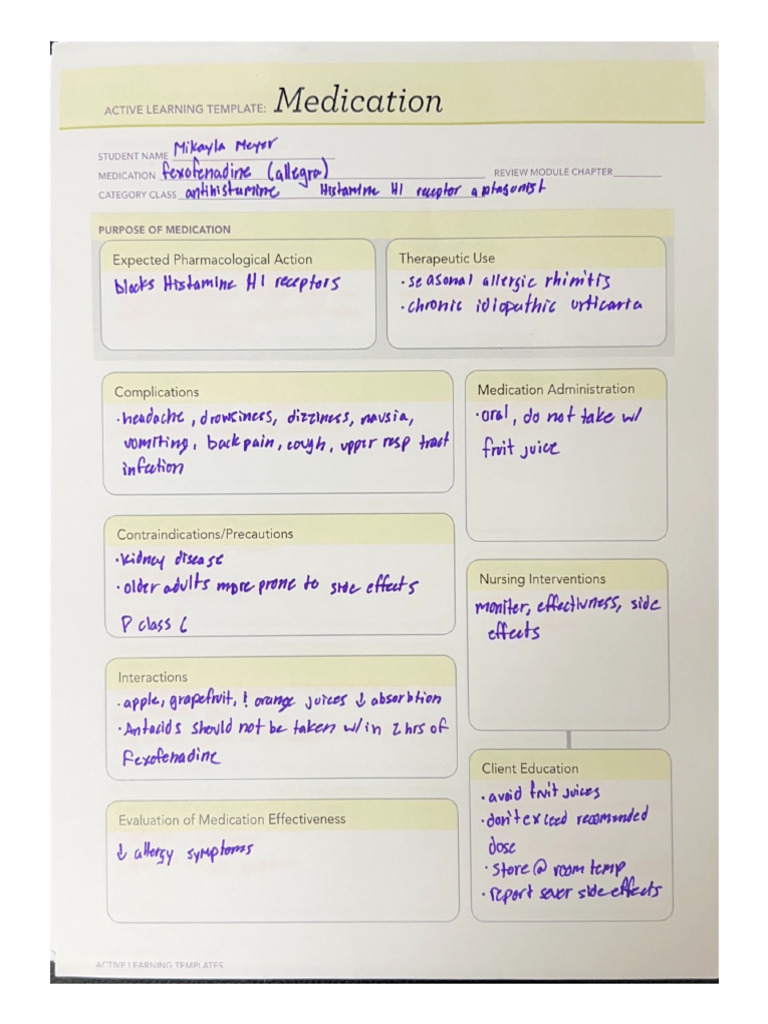 ACTIVE LEARNING TEMPLATE: Medication
STUDENT NAME Mikayla Meyer
MEDICATION fexofenadine (allegra) REVIEW MODULE CHAPTER
CATEGORY CLASS antihistamine Histamine H1 receptor aptagonist
PURPOSE OF MEDICATION
Expected Pharmacological Action
blocks Histamine H1 receptors
Therapeutic Use
· seasonal allergic rhinitis
· chronic idiopathic urticaria
Complications
· headache, drowsiness, dizziness, nausia,
vomiting, back pain, cough, upper resp tract
infection
Medication Administration
· oral, do not take w/
fruit juice
Contraindications/Precautions
· kidney disease
· older adults more prone to side effects
P class C
Nursing Interventions
moniter, effectivness, side
effects
Interactions
· apple, grapefruit, & orange juices ↓ absorbtion
· Antacids should not be taken w/in 2 hrs of
Fexofenadine
Client Education
· avoid fruit juices
· don't exceed recomended
dose
· store @ room temp
· report sever side effects
Evaluation of Medication Effectiveness
↓ allergy symptoms
ACTIVE LEARNING TEMPLATES